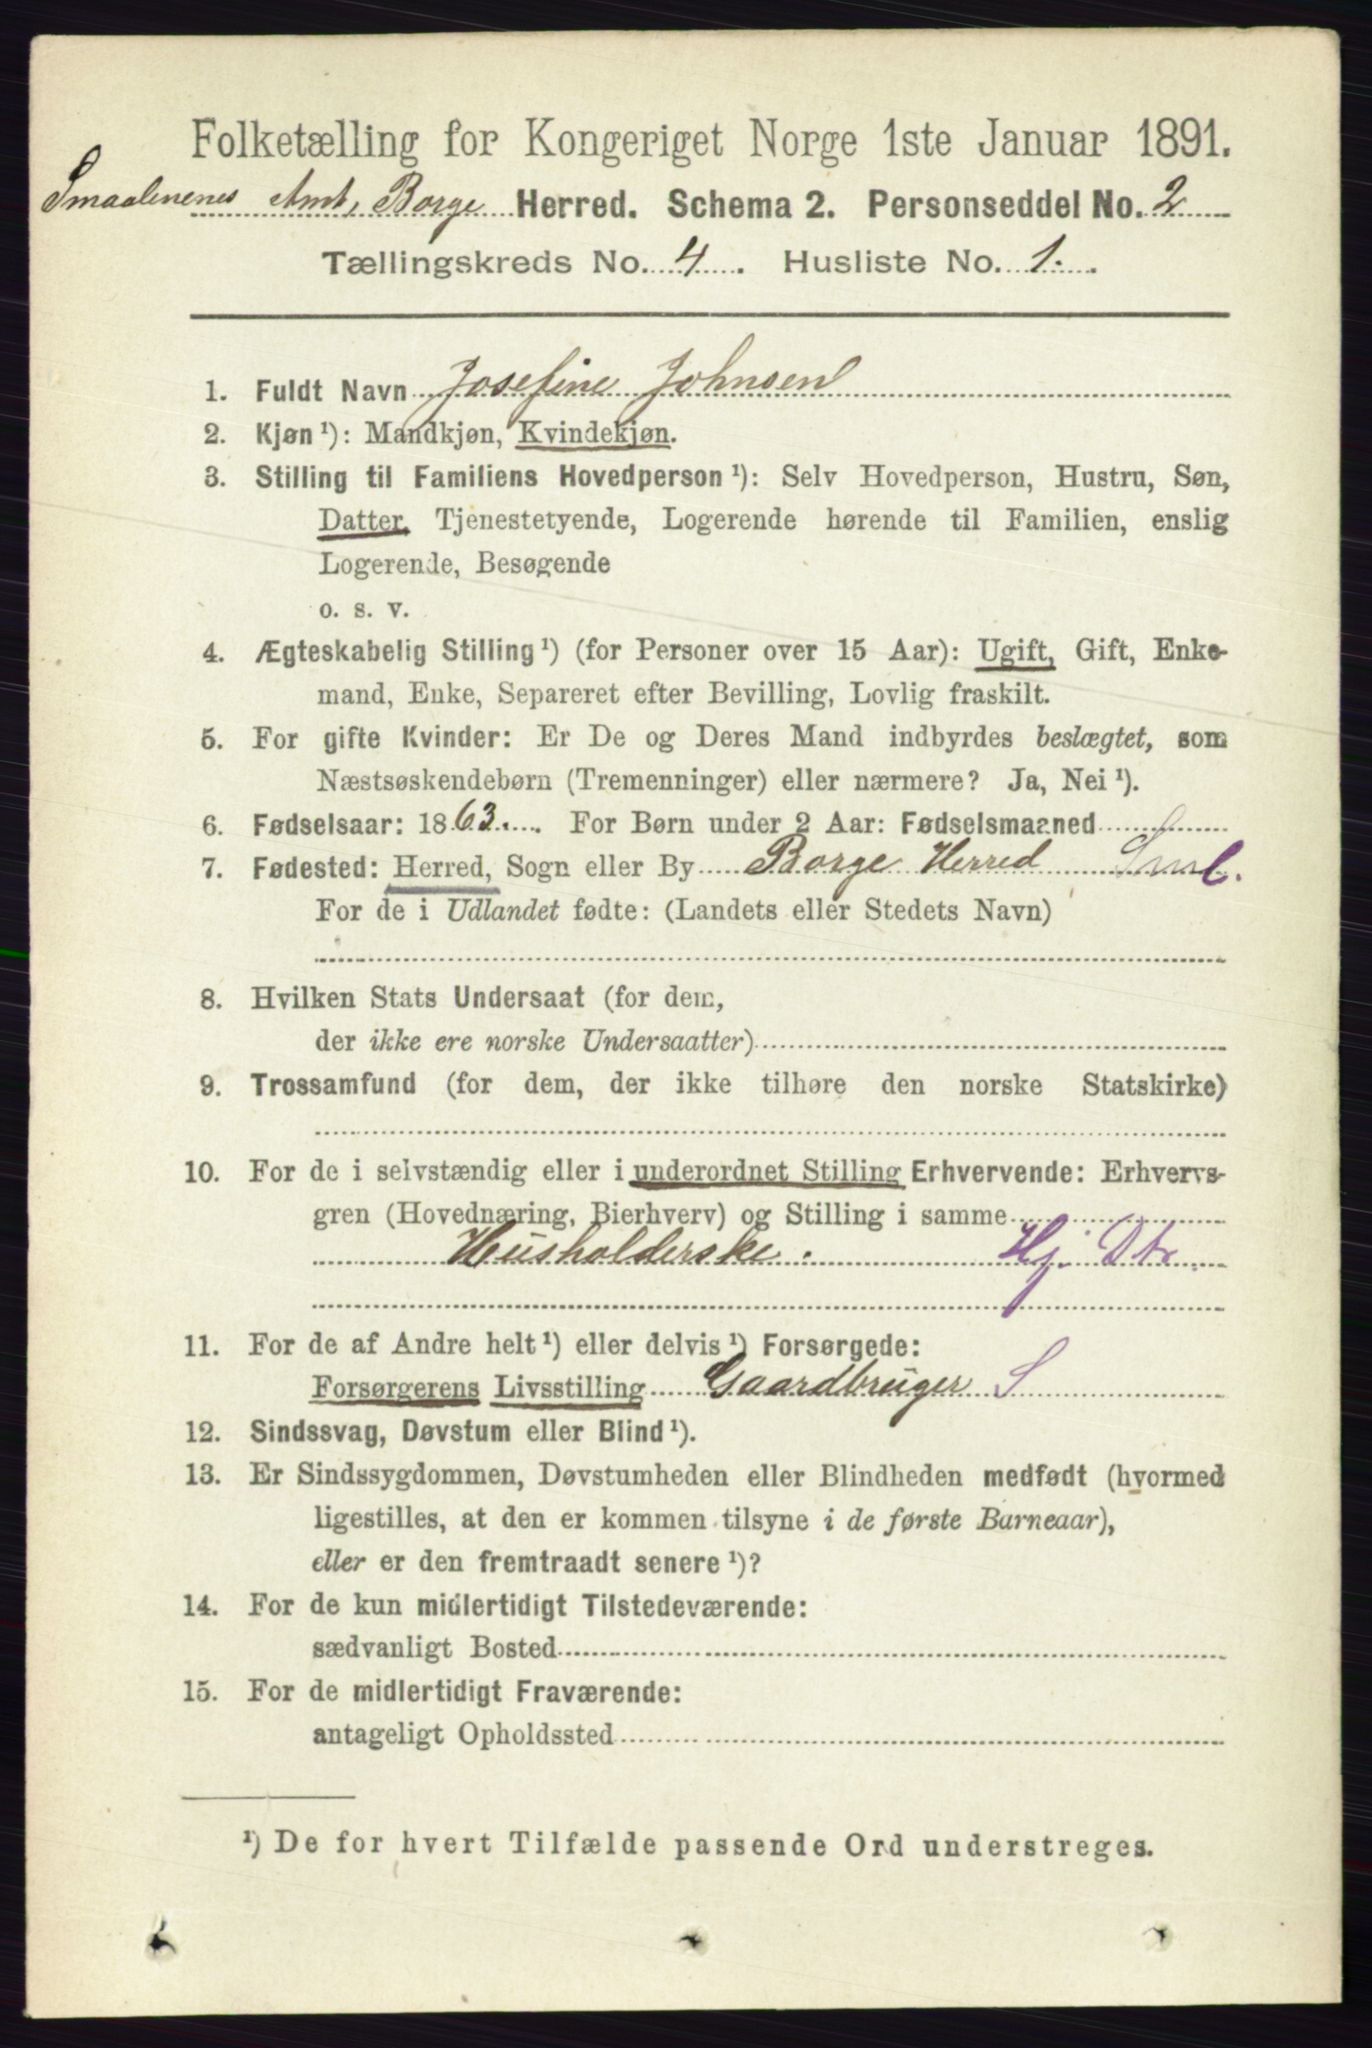 Folketælling for Kongeriget Norge 1ste Januar 1891.
Smaalenenes Amt, Borge Herred. Schema 2. Personseddel No. 2
Tællingskreds No. 4. Husliste No. 1.
1. Fuldt Navn Josefine Johnsen
2. Kjøn ¹): Mandkjøn, Kvindekjøn.
3. Stilling til Familiens Hovedperson ¹): Selv Hovedperson, Hustru, Søn,
Datter, Tjenestetyende, Logerende hørende til Familien, enslig
Logerende, Besøgende
o. s. v.
4. Ægteskabelig Stilling ¹) (for Personer over 15 Aar): Ugift, Gift, Enke-
mand, Enke, Separeret efter Bevilling, Lovlig fraskilt.
5. For gifte Kvinder: Er De og Deres Mand indbyrdes beslægtet, som
Næstsøskendebørn (Tremenninger) eller nærmere? Ja, Nei ¹).
6. Fødselsaar: 1863. For Børn under 2 Aar: Fødselsmaaned
7. Fødested: Herred, Sogn eller By Borge Herred Sml.
For de i Udlandet fødte: (Landets eller Stedets Navn)
8. Hvilken Stats Undersaat (for dem,
der ikke ere norske Undersaatter)
9. Trossamfund (for dem, der ikke tilhøre den norske Statskirke)
10. For de i selvstændig eller i underordnet Stilling Erhvervende: Erhvervs-
gren (Hovednæring, Bierhverv) og Stilling i samme
Husholderske. Hj. Dtr.
11. For de af Andre helt ¹) eller delvis ¹) Forsørgede:
Forsørgerens Livsstilling Gaardbruger S
12. Sindssvag, Døvstum eller Blind ¹).
13. Er Sindssygdommen, Døvstumheden eller Blindheden medfødt (hvormed
ligestilles, at den er kommen tilsyne i de første Barneaar),
eller er den fremtraadt senere ¹)?
14. For de kun midlertidigt Tilstedeværende:
sædvanligt Bosted
15. For de midlertidigt Fraværende:
antageligt Opholdssted
¹) De for hvert Tilfælde passende Ord understreges.